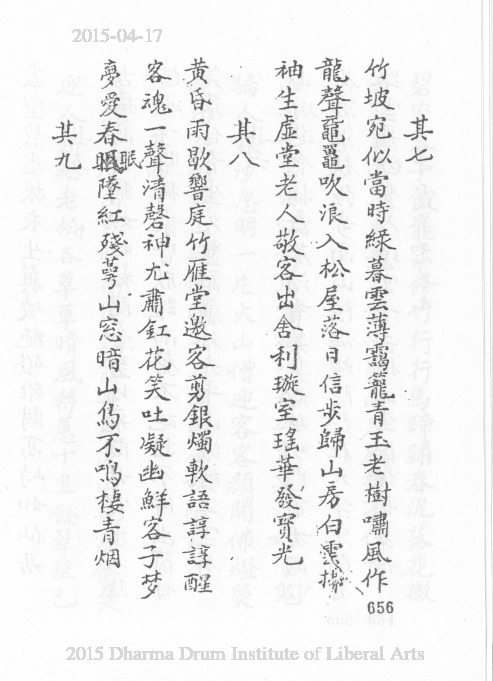 2015-04-17
其七
竹坡宛似當時綠暮雲薄靄籠青玉老樹嘯風作
龍聲鼉鼉吹浪入松屋落日信步歸山房白雲揚
袖生虛堂老人敬客出舍利璇室瑤華發寶光
其八
黃昏雨歇響庭竹雁堂邀客剪銀燭軟語諄諄醒
客魂一聲清磬神尤肅釭花笑吐凝幽鮮客子梦
夢愛春眠眠墜紅殘萼山窓暗山鳥不鳴棲青烟
其九
656
2015 Dharma Drum Institute of Liberal Arts